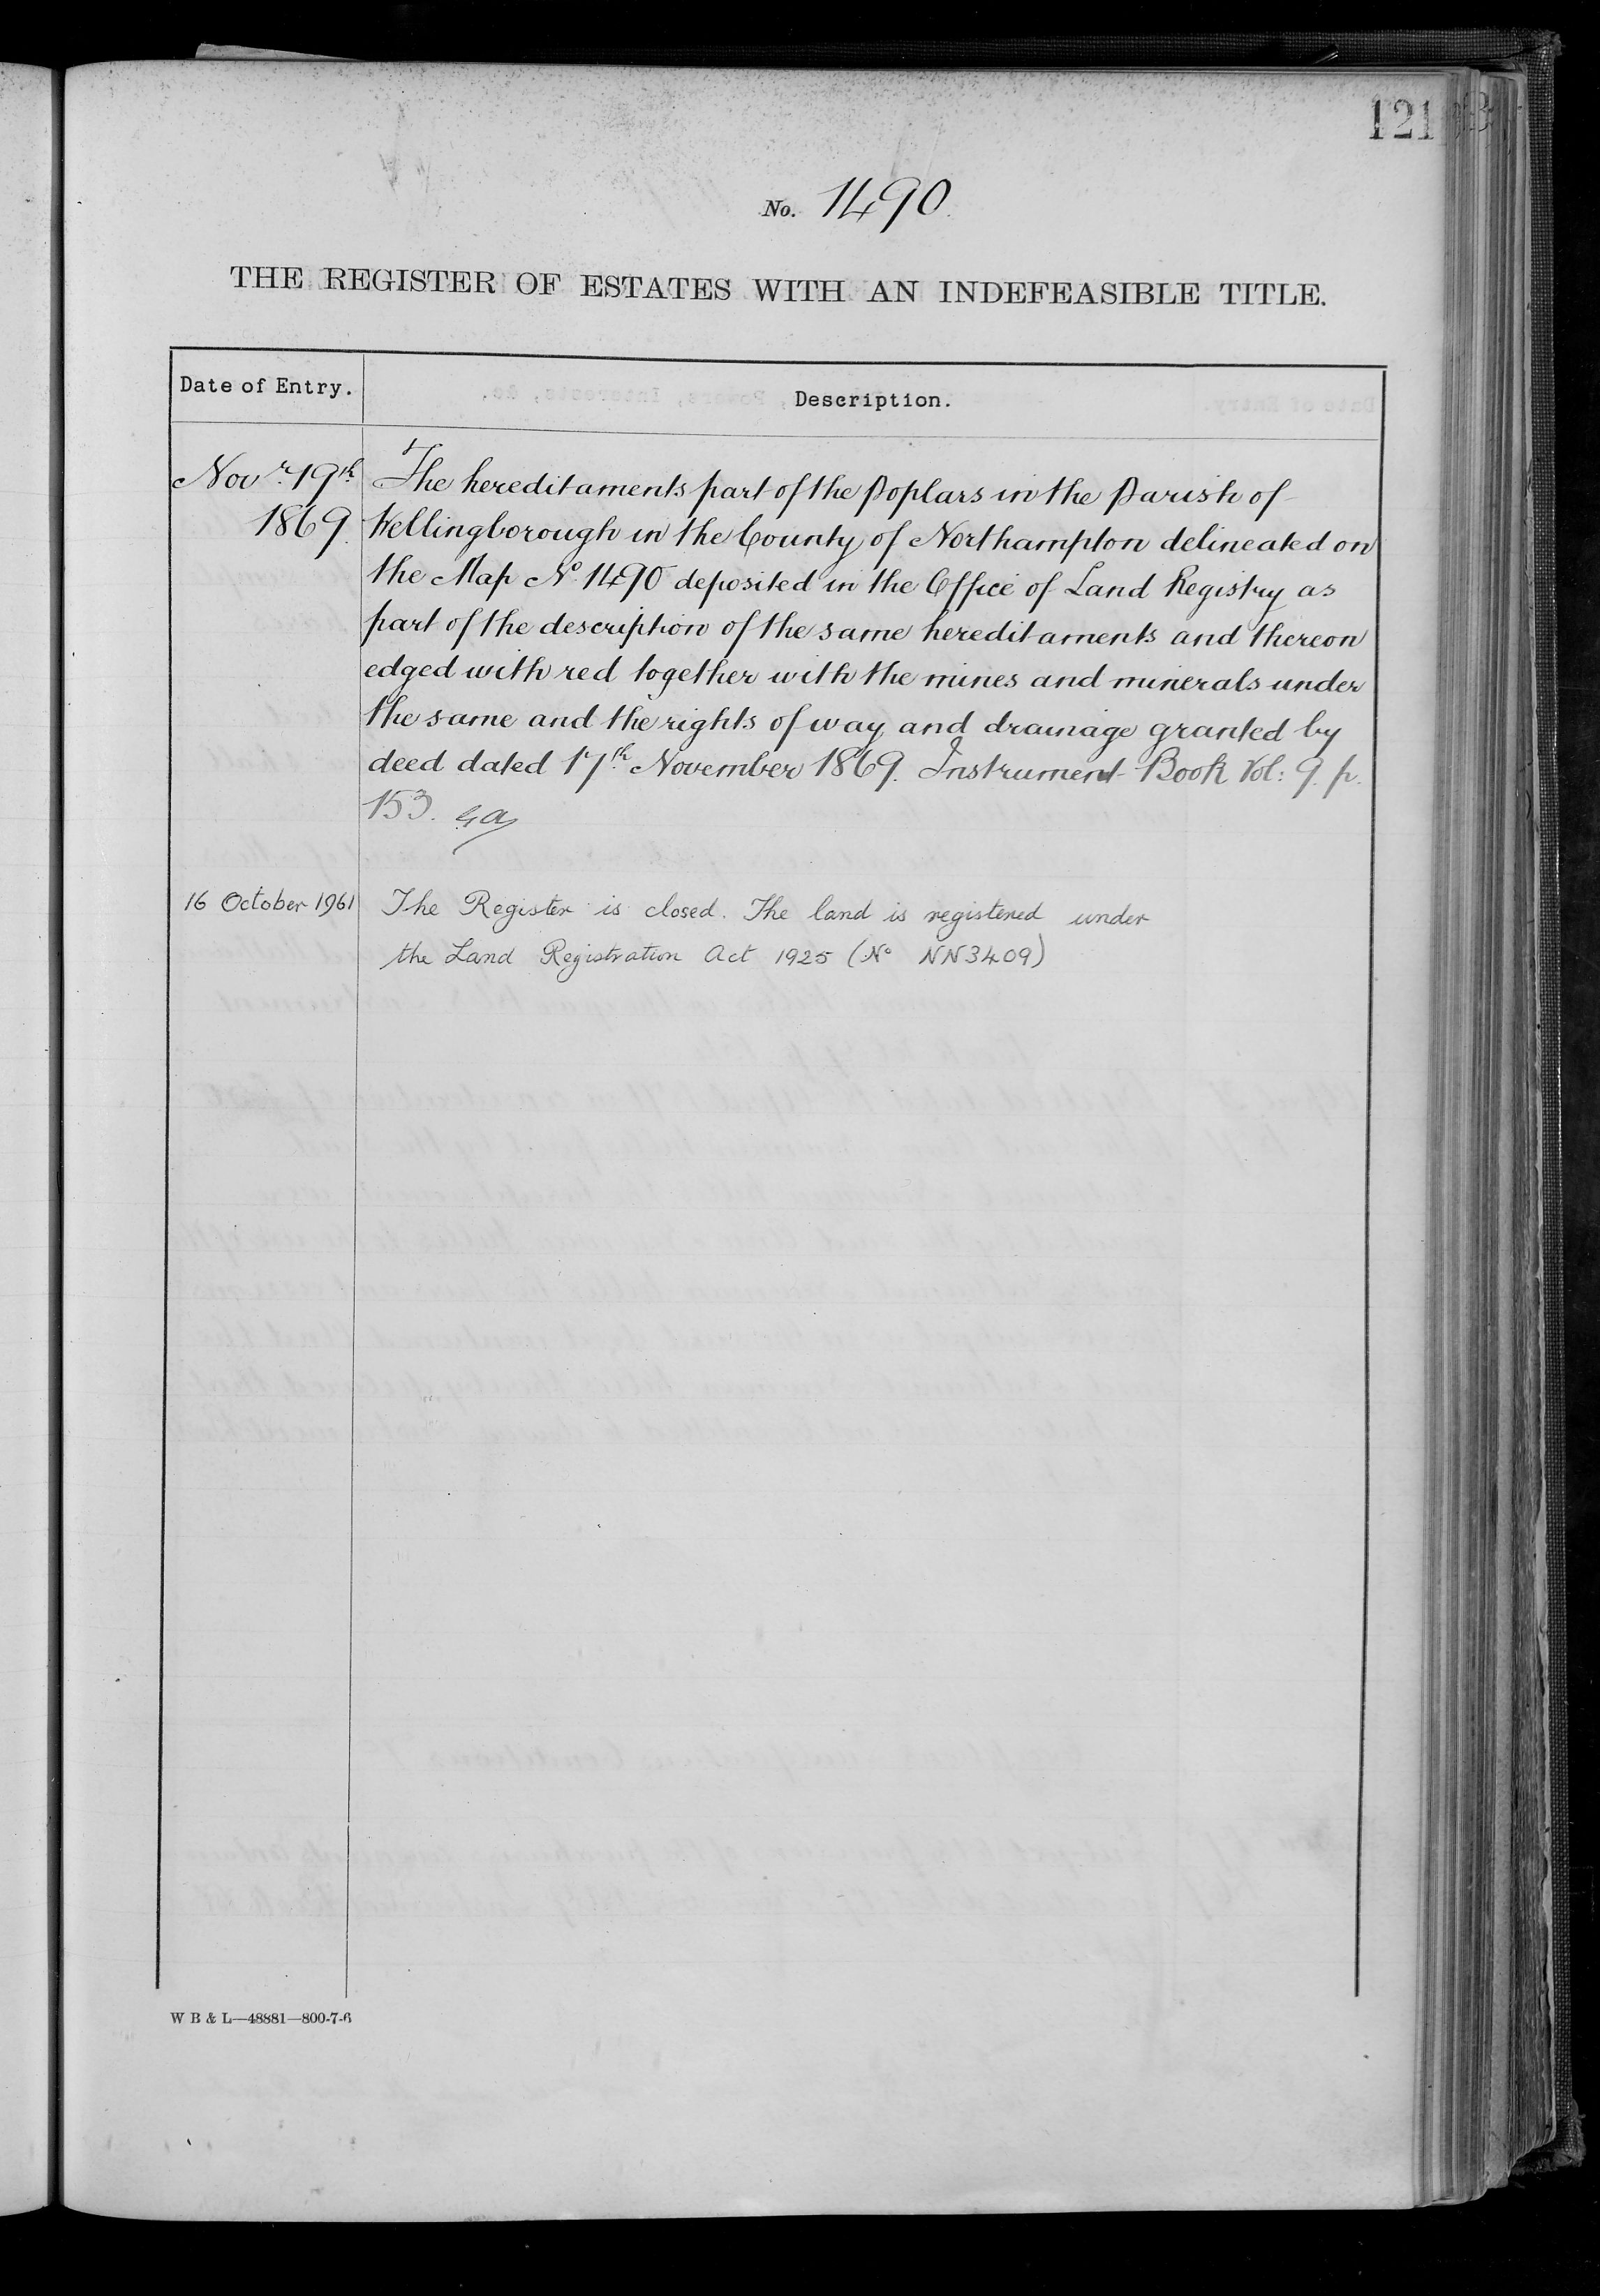 121
No. 1490.
THE REGISTER OF ESTATES WITH AN INDEFEASIBLE TITLE.
Date of Entry.
Description.
Novr. 19th
1869.
The hereditaments part of the Poplars in the Parish of
Wellingborough in the County of Northampton delineated on
the Map No. 1490 deposited in the Office of Land Registry as
part of the description of the same hereditaments and thereon
edged with red together with the mines and minerals under
the same and the rights of way and drainage granted by
deed dated 17th November 1869. Instrument Book Vol: 9. p.
153.
16 October 1961
The Register is closed. The land is registered under
the Land Registration Act 1925 (No NN3409)
W B & L—48881—800-7-6